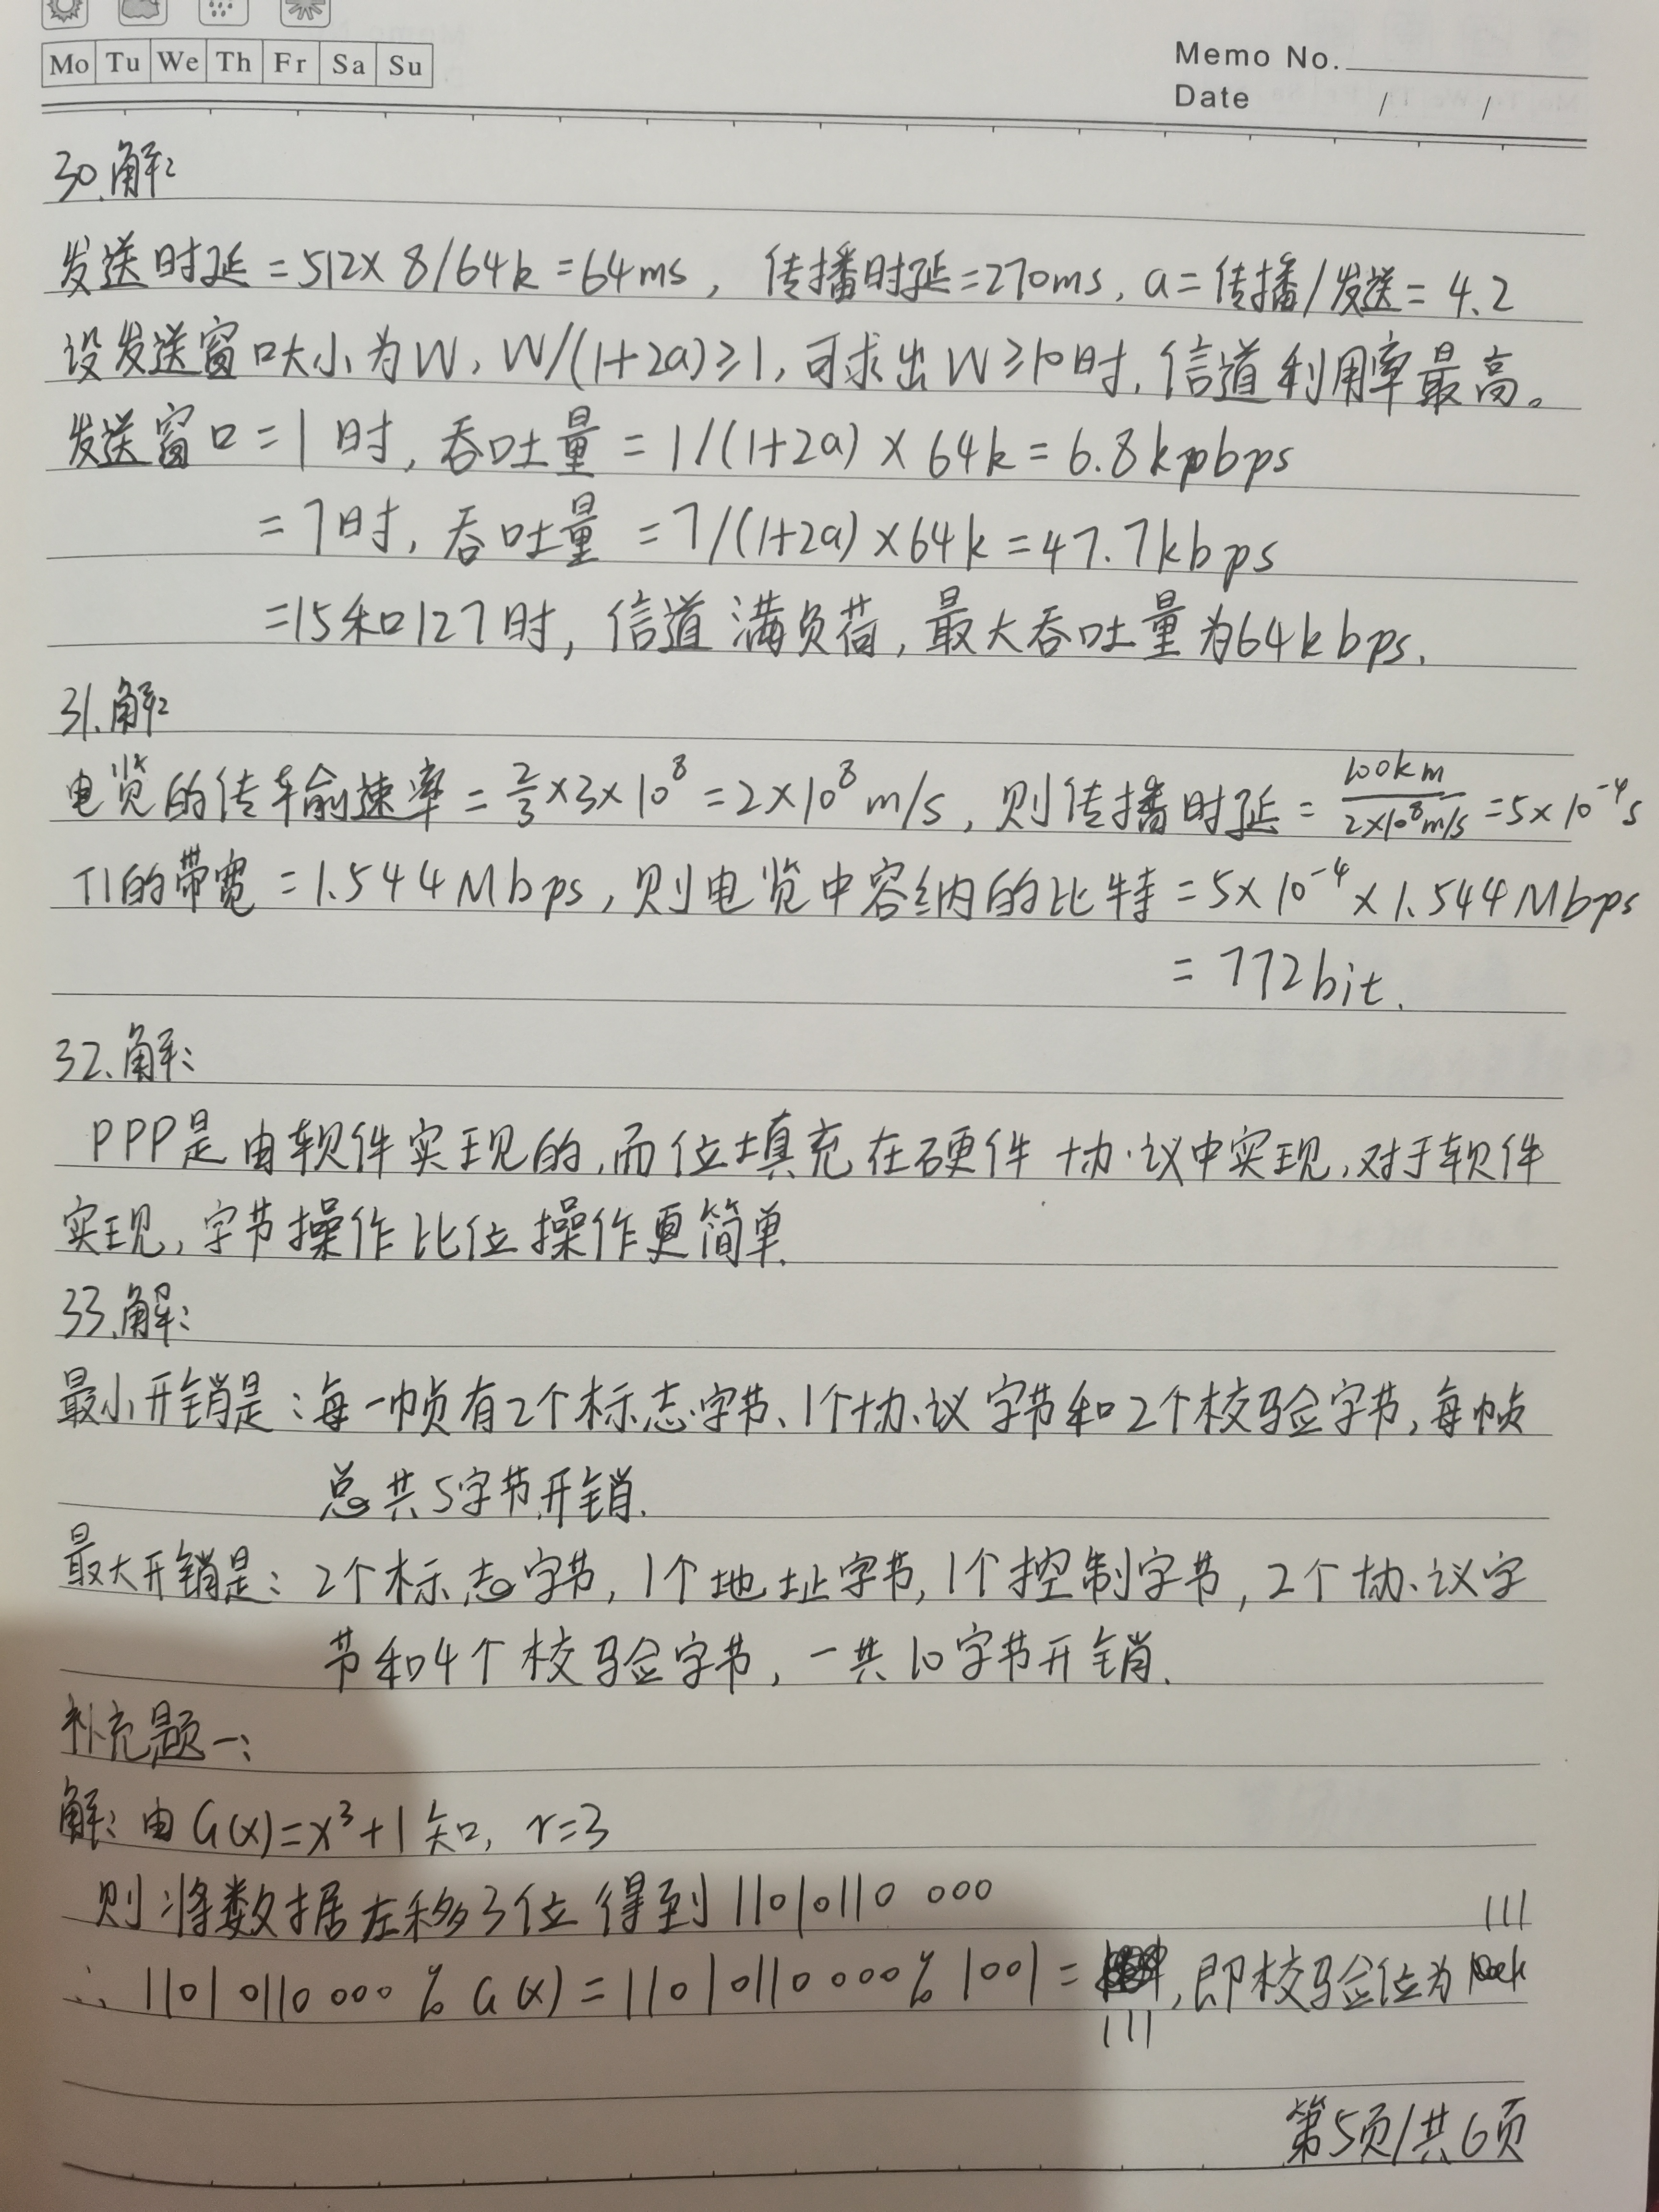 Mo Tu We Th Fr Sa Su
Memo No.
Date / /
30.解:
发送时延=512×8/64k=64ms, 传播时延=270ms, a=传播/发送=4.2
设发送窗口大小为W, W/(1+2a)≥1, 可求出W≥10时, 信道利用率最高。
发送窗口=1时, 吞吐量=1/(1+2a)×64k=6.8kbps
=7时, 吞吐量=7/(1+2a)×64k=47.7kbps
=15和127时, 信道满负荷, 最大吞吐量为64kbps.
31.解:
电览的传输速率=2/3×3×10⁸=2×10⁸m/s, 则传播时延=100km/2×10⁸m/s=5×10⁻⁴s
T1的带宽=1.544Mbps, 则电览中容纳的比特=5×10⁻⁴×1.544Mbps
=772bit.
32.解:
PPP是由软件实现的,而位填充在硬件协议中实现,对于软件
实现,字节操作比位操作更简单.
33.解:
最小开销是:每一帧有2个标志字节、1个协议字节和2个校验字节,每帧
总共5字节开销.
最大开销是:2个标志字节,1个地址字节,1个控制字节,2个协议字
节和4个校验字节,一共10字节开销.
补充题一:
解:由G(x)=x³+1知, r=3
则将数据左移3位得到11010110 000
∴ 11010110000 % G(x)=11010110000 % 1001=111,即校验位为111
第5页/共6页